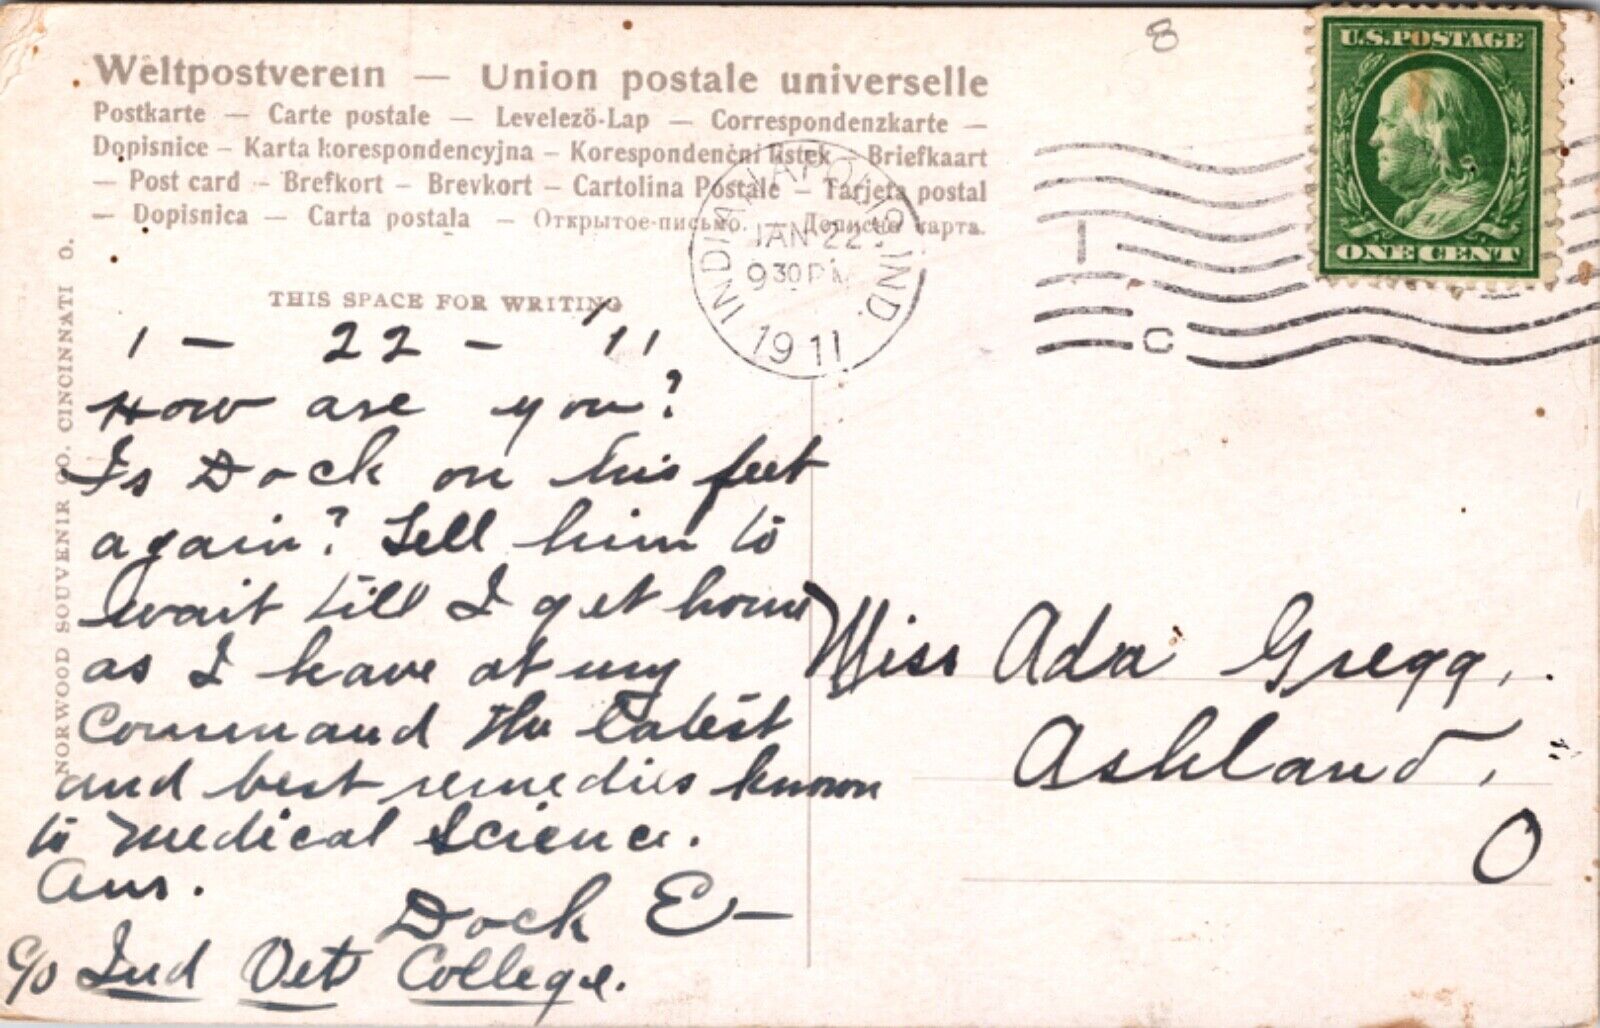 8
U.S.POSTAGE
ONE CENT
Weltpostverein — Union postale universelle
Postkarte — Carte postale — Levelezö-Lap — Correspondenzkarte —
Dopisnice – Karta korespondencyjna – Korespondenční listek – Briefkaart
— Post card – Brefkort – Brevkort – Cartolina Postale – Tarjeta postal
— Dopisnica — Carta postala — Открытое-письмо. — Дописна карта.
INDIANAPOLIS, IND.
JAN 22
930 PM
1911
1
C
THIS SPACE FOR WRITING
NORWOOD SOUVENIR CO. CINCINNATI O.
1 – 22 – '11
How are you?
Is Dock on his feet
again? Tell him to
wait till I get home
as I have at my
command the latest
and best remedies known
to medical science.
Ans.
Dock E—
c/o Ind Vet College.
Miss Ada Gregg,
Ashland,
O